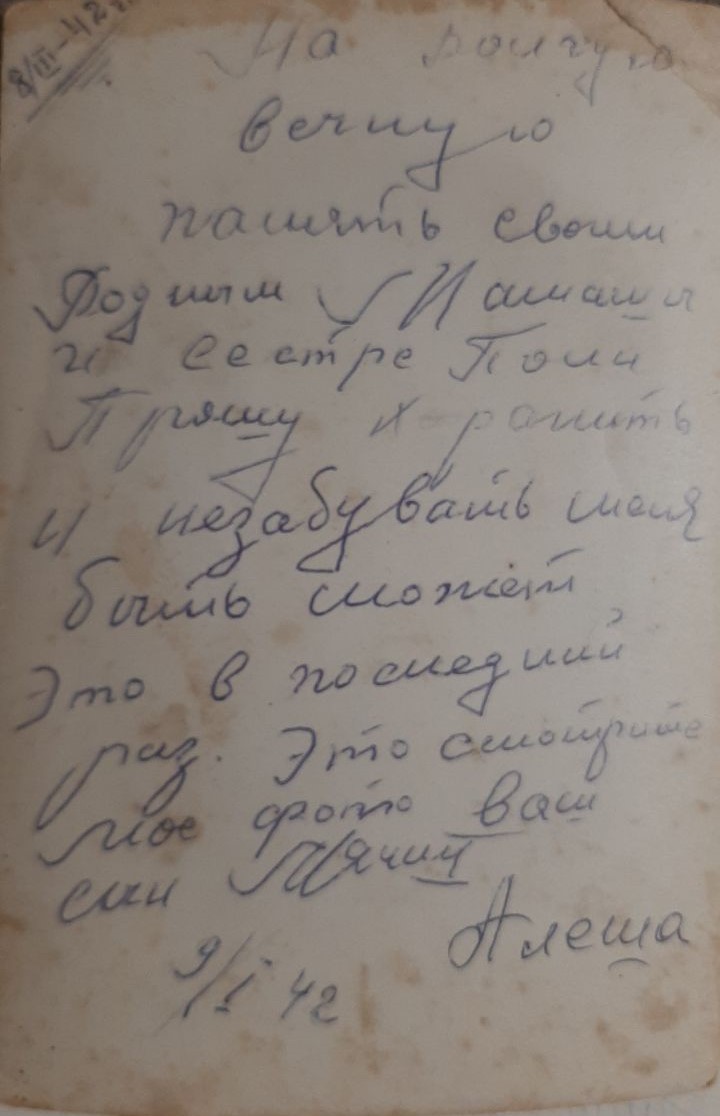 8/III-42 г.
На долгую
вечную
память своим
Родным Мамаши
и Сестре Поли
Прашу хранить
и незабувать меня
быть может
Это в последний
раз. Это смотрите
мое фото ваш
син
Алеша
9/I 42